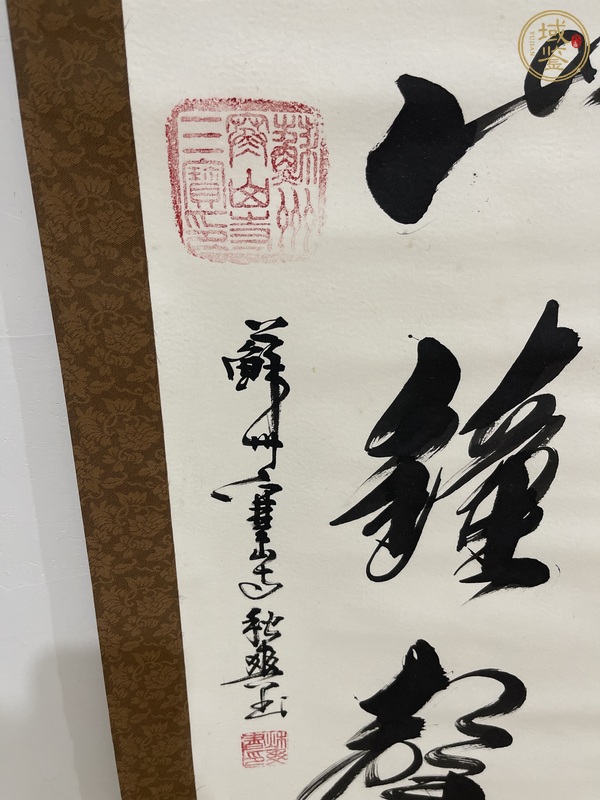 鐘聲
蘇州
寒山寺
三寶印
蘇州寒山寺秋爽
域鉴
YUJIAN